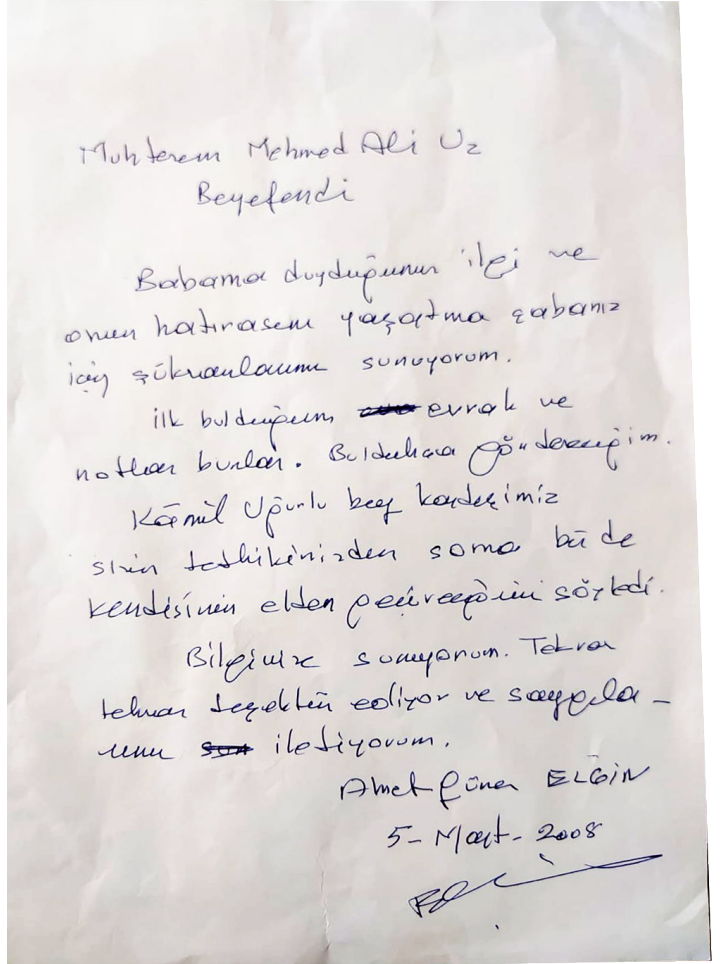 Muhterem Mehmed Ali Uz
Beyefendi
Babama duyduğunuz ilgi ve
onun hatırasını yaşatma çabanız
için şükranlarımı sunuyorum.
İlk bulduğum evrak ve
notlar bunlar. Buldukça göndereceğim.
Kâmil Uğurlu bey kardeşimiz
sizin tetkikinizden sonra bir de
kendisinin elden geçireceğini söyledi.
Bilginize sunuyorum. Tekrar
tekrar teşekkür ediyor ve saygıla-
rımı iletiyorum.
Ahmet Güner ELGİN
5-Mart-2008